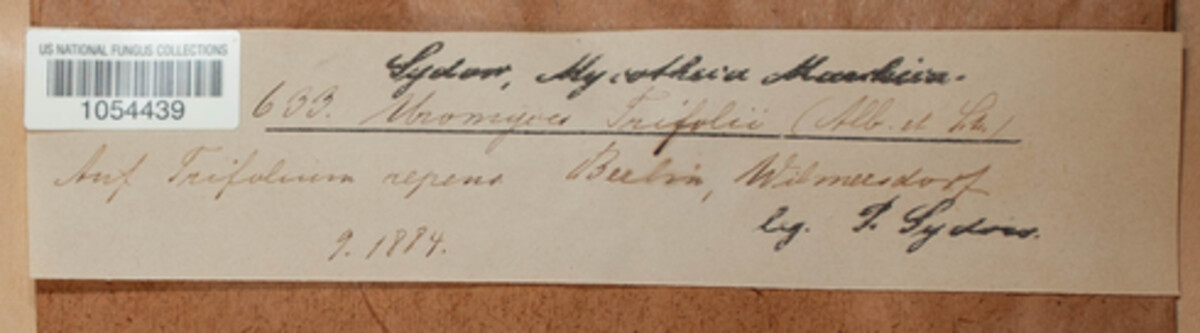 US NATIONAL FUNGUS COLLECTIONS
1054439
Sydow, Mycotheca Marchica.
633. Uromyces Trifolii (Alb. et )
Auf Trifolium repens Berlin, Wilmersdorf
9. 1884.
leg. P. Sydow.